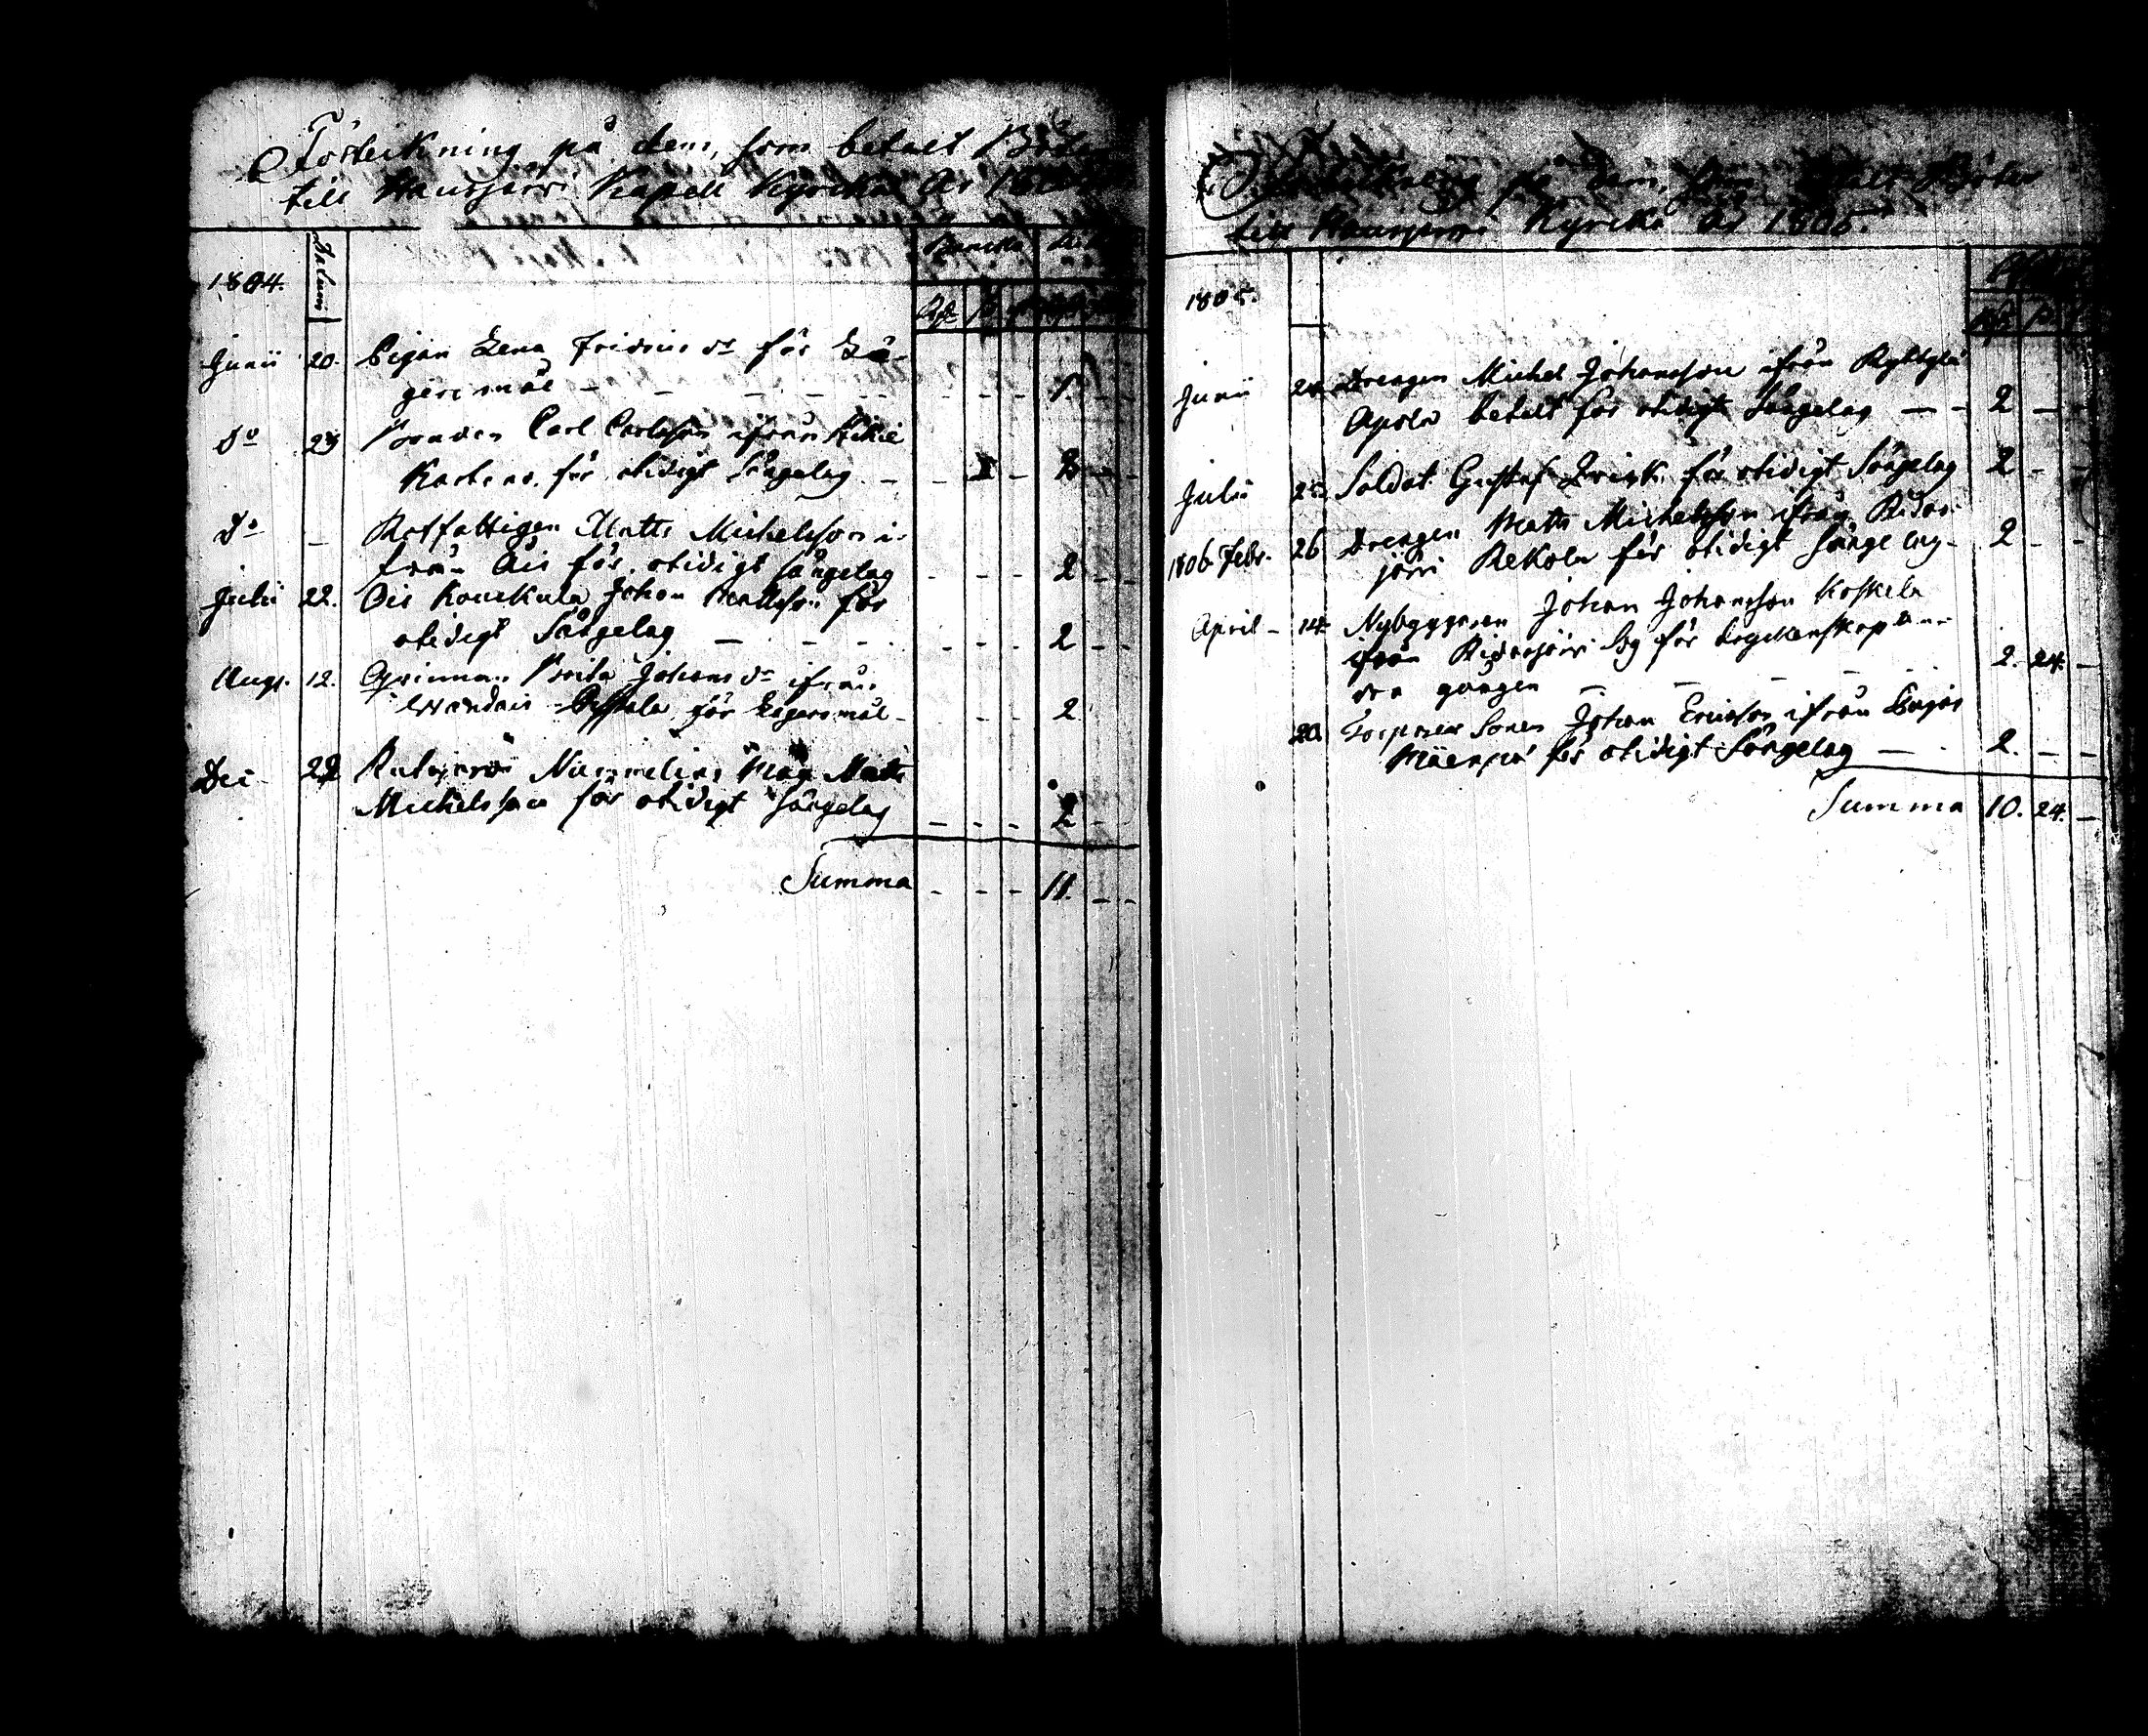 Förteckning på dem, som betalt Böter
till Hausjervi Kapell Kyrcka År 18
Datum
Bancko
1804.
Junii 20. Pigan Lena Fridrics dr för Lä-
gersmål - - - 1. - -
do 29 Bonden Carl Carlsson ifrån
för otidigt Sängelag - - - 2 - -
do - Rotfattigen Matts Michelsson i-
från Ois för otidigt sängelag - - - 2 - -
Julii 22. Ois Johan Mattsson för
otidigt Sängelag - - - 2 - -
Augs. 12. Qvinnan Brita Johans dr ifrån
för Lägersmål - - - 2
Dec 22 Nummelins Måg Matts
Michelsson för otidigt sängelag - - - 2 -
Summa - - - 11. - -
på dem, som betalt Böter
till Hausjervi Kyrcka År 1805.
1805.
Junii 24 Drengen Michel Johansson ifrån Ryttylä
Apola betalt för otidigt Sängelag - - 2 - -
Julii Soldat Gustaf för otidigt Sängelag 2 - -
1806 Febr. 26 Drengen Matts Michelsson ifrån Ridas-
järvi Rekola för otidigt sängelag - 2 - -
April - 14. Nybyggaren Johan Johansson Koskela
ifrån Ridasjärvi by för dryckenskap an-
dra gången - - - - 2. 24. -
20. Torpare Sonen Johan Ericsson ifrån
Mäenpä för otidigt Sängelag - . 2. - -
Summa 10. 24. -